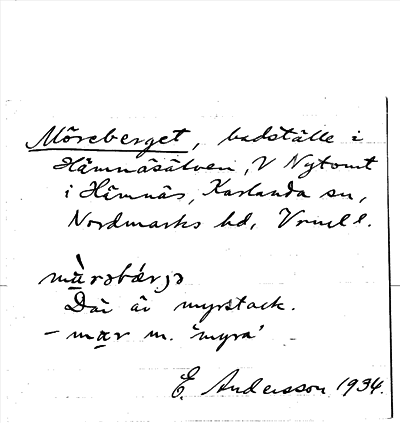 Möreberget, badställe i
Hämnäsälven, V Nytomt
i Hämnäs, Karlanda sn,
Nordmarks hd, Vrml l.
mùrəbærjə
Där är myrstack.
– mær m. 'myra'
E. Andersson 1934.